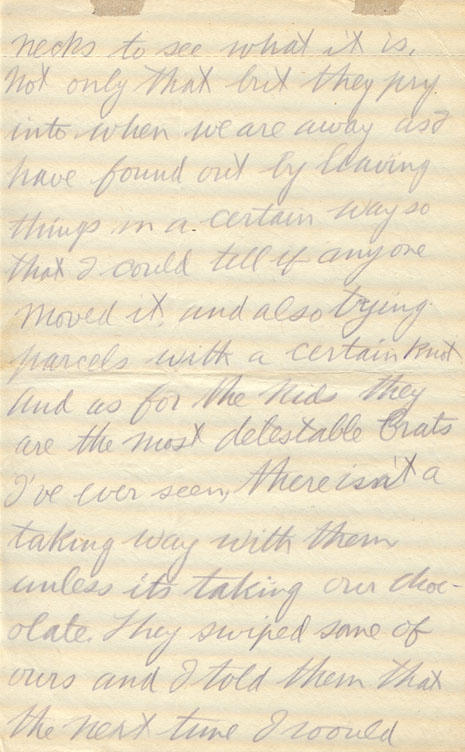 necks to see what it is.
Not only that but they pry
into when we are away as I
have found out by leaving
things in a certain way so
that I could tell if anyone
moved it, and also tying
parcels with a certain knot
And as for the kids they
are the most delestable brats
I've ever seen, there isn't a
taking way with them
unless its taking our choc-
olate. They swiped some of
ours and I told them that
the next time I would